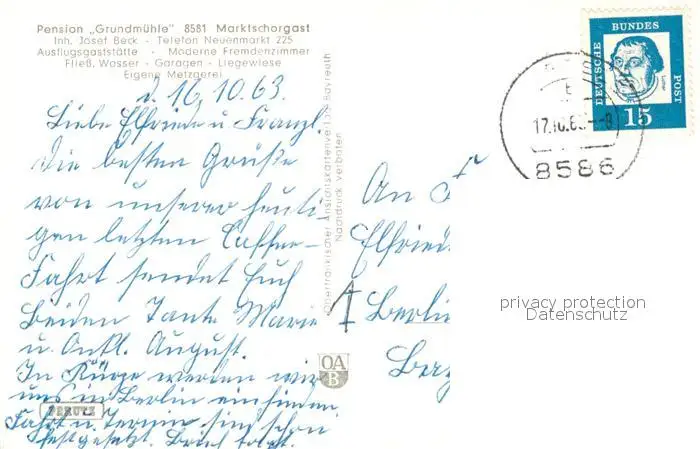 Pension „Grundmühle" 8581 Marktschorgast
Inh. Josef Beck - Telefon Neuenmarkt 225
Ausflugsgaststätte - Moderne Fremdenzimmer
Fließ. Wasser - Garagen - Liegewiese
Eigene Metzgerei
d. 16.10.63.
Liebe Elfriede u. Franzl.
Die besten Grüße
von unserer heuti-
gen letzten Caffee-
Fahrt sendet Euch
beiden Tante Marie
u. Onkl. August.
In Kürze werden wir
uns in Berlin einfinden
Fahrt u. Termin sind schon
festgesetzt. Brief folgt.
PERUTZ
Oberfränkischer Ansichtskartenverlag Bayreuth
Nachdruck verboten
OA
B
DEUTSCHE
BUNDES
POST
15
Luther
17.10.63.--8
8586
An F
Elfried
Berlin
Berg
privacy protection
Datenschutz